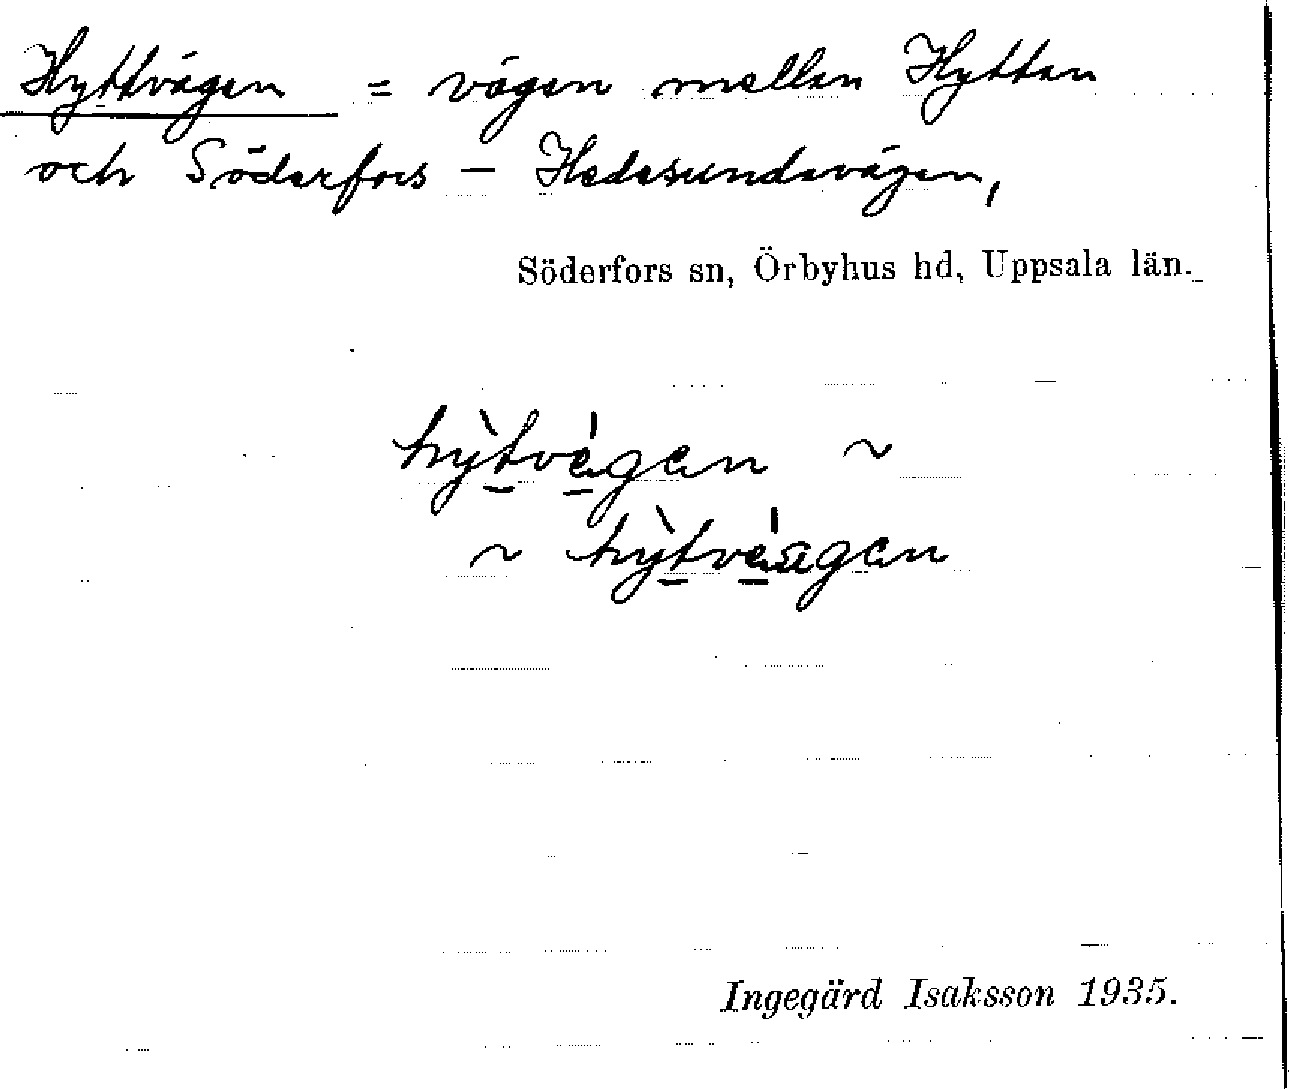 Hyttvägen = vägen mellan Hyttan
och Söderfors – Hedesundavägen,
Söderfors sn, Örbyhus hd, Uppsala län.
hỳtvégen ~
~ hỳtvéagen
Ingegärd Isaksson 1935.